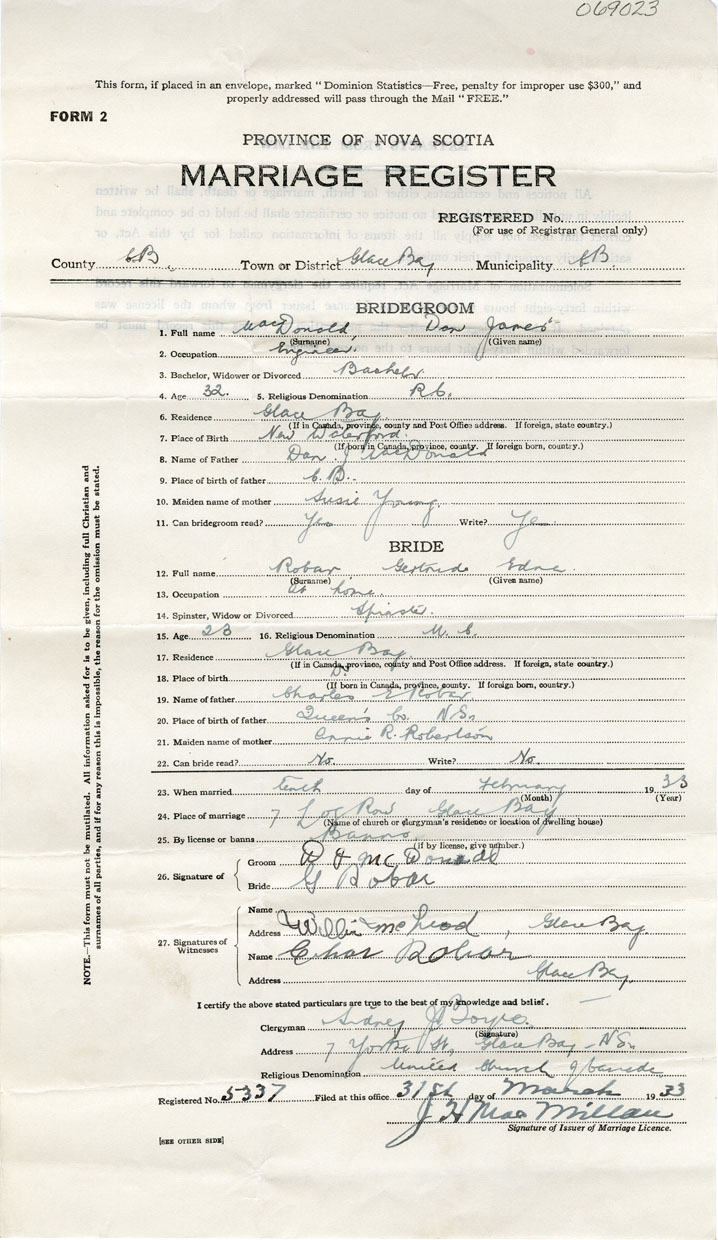 069023
This form, if placed in an envelope, marked "Dominion Statistics—Free, penalty for improper use $300," and
properly addressed will pass through the Mail "FREE."
FORM 2
PROVINCE OF NOVA SCOTIA
MARRIAGE REGISTER
REGISTERED No.
(For use of Registrar General only)
County C.B. Town or District Glace Bay Municipality C.B.
BRIDEGROOM
1. Full name MacDonald Dan James
(Surname) (Given name)
2. Occupation Engineer
3. Bachelor, Widower or Divorced Bachelor
4. Age 32. 5. Religious Denomination R.C.
6. Residence Glace Bay
(If in Canada, province, county and Post Office address. If foreign, state country.)
7. Place of Birth New Waterford
(If born in Canada, province, county. If foreign born, country.)
8. Name of Father Dan J MacDonald
9. Place of birth of father C.B.
10. Maiden name of mother Susie Young
11. Can bridegroom read? Yes Write? Yes
BRIDE
12. Full name Robar Gertrude Edna
(Surname) (Given name)
13. Occupation at home
14. Spinster, Widow or Divorced Spinster.
15. Age 23 16. Religious Denomination U.C.
17. Residence Glace Bay
(If in Canada, province, county and Post Office address. If foreign, state country.)
18. Place of birth Do
(If born in Canada, province, county. If foreign born, country.)
19. Name of father Charles E Robar
20. Place of birth of father Queen's Co. N.S.
21. Maiden name of mother Annie R. Robertson
22. Can bride read? No. Write? No.
23. When married tenth day of February 1933
(Month) (Year)
24. Place of marriage 7 Log Row Glace Bay
(Name of church or clergyman's residence or location of dwelling house)
25. By license or banns Banns
(if by license, give number.)
26. Signature of
Groom D J McDonald
Bride G Robar
27. Signatures of Witnesses
Name Willie McLeod
Address Glace Bay.
Name Chas Robar
Address Glace Bay.
I certify the above stated particulars are true to the best of my knowledge and belief.
Clergyman Sidney J. Boyce.
(Signature)
Address 7 Yorke St., Glace Bay - N.S.
Religious Denomination United Church of Canada
Registered No. 5337 Filed at this office 31st day of March 1933
J H MacMillan
Signature of Issuer of Marriage Licence.
[SEE OTHER SIDE]
NOTE.—This form must not be mutilated. All information asked for is to be given, including full Christian and
surnames of all parties, and if for any reason this is impossible, the reason for the omission must be stated.